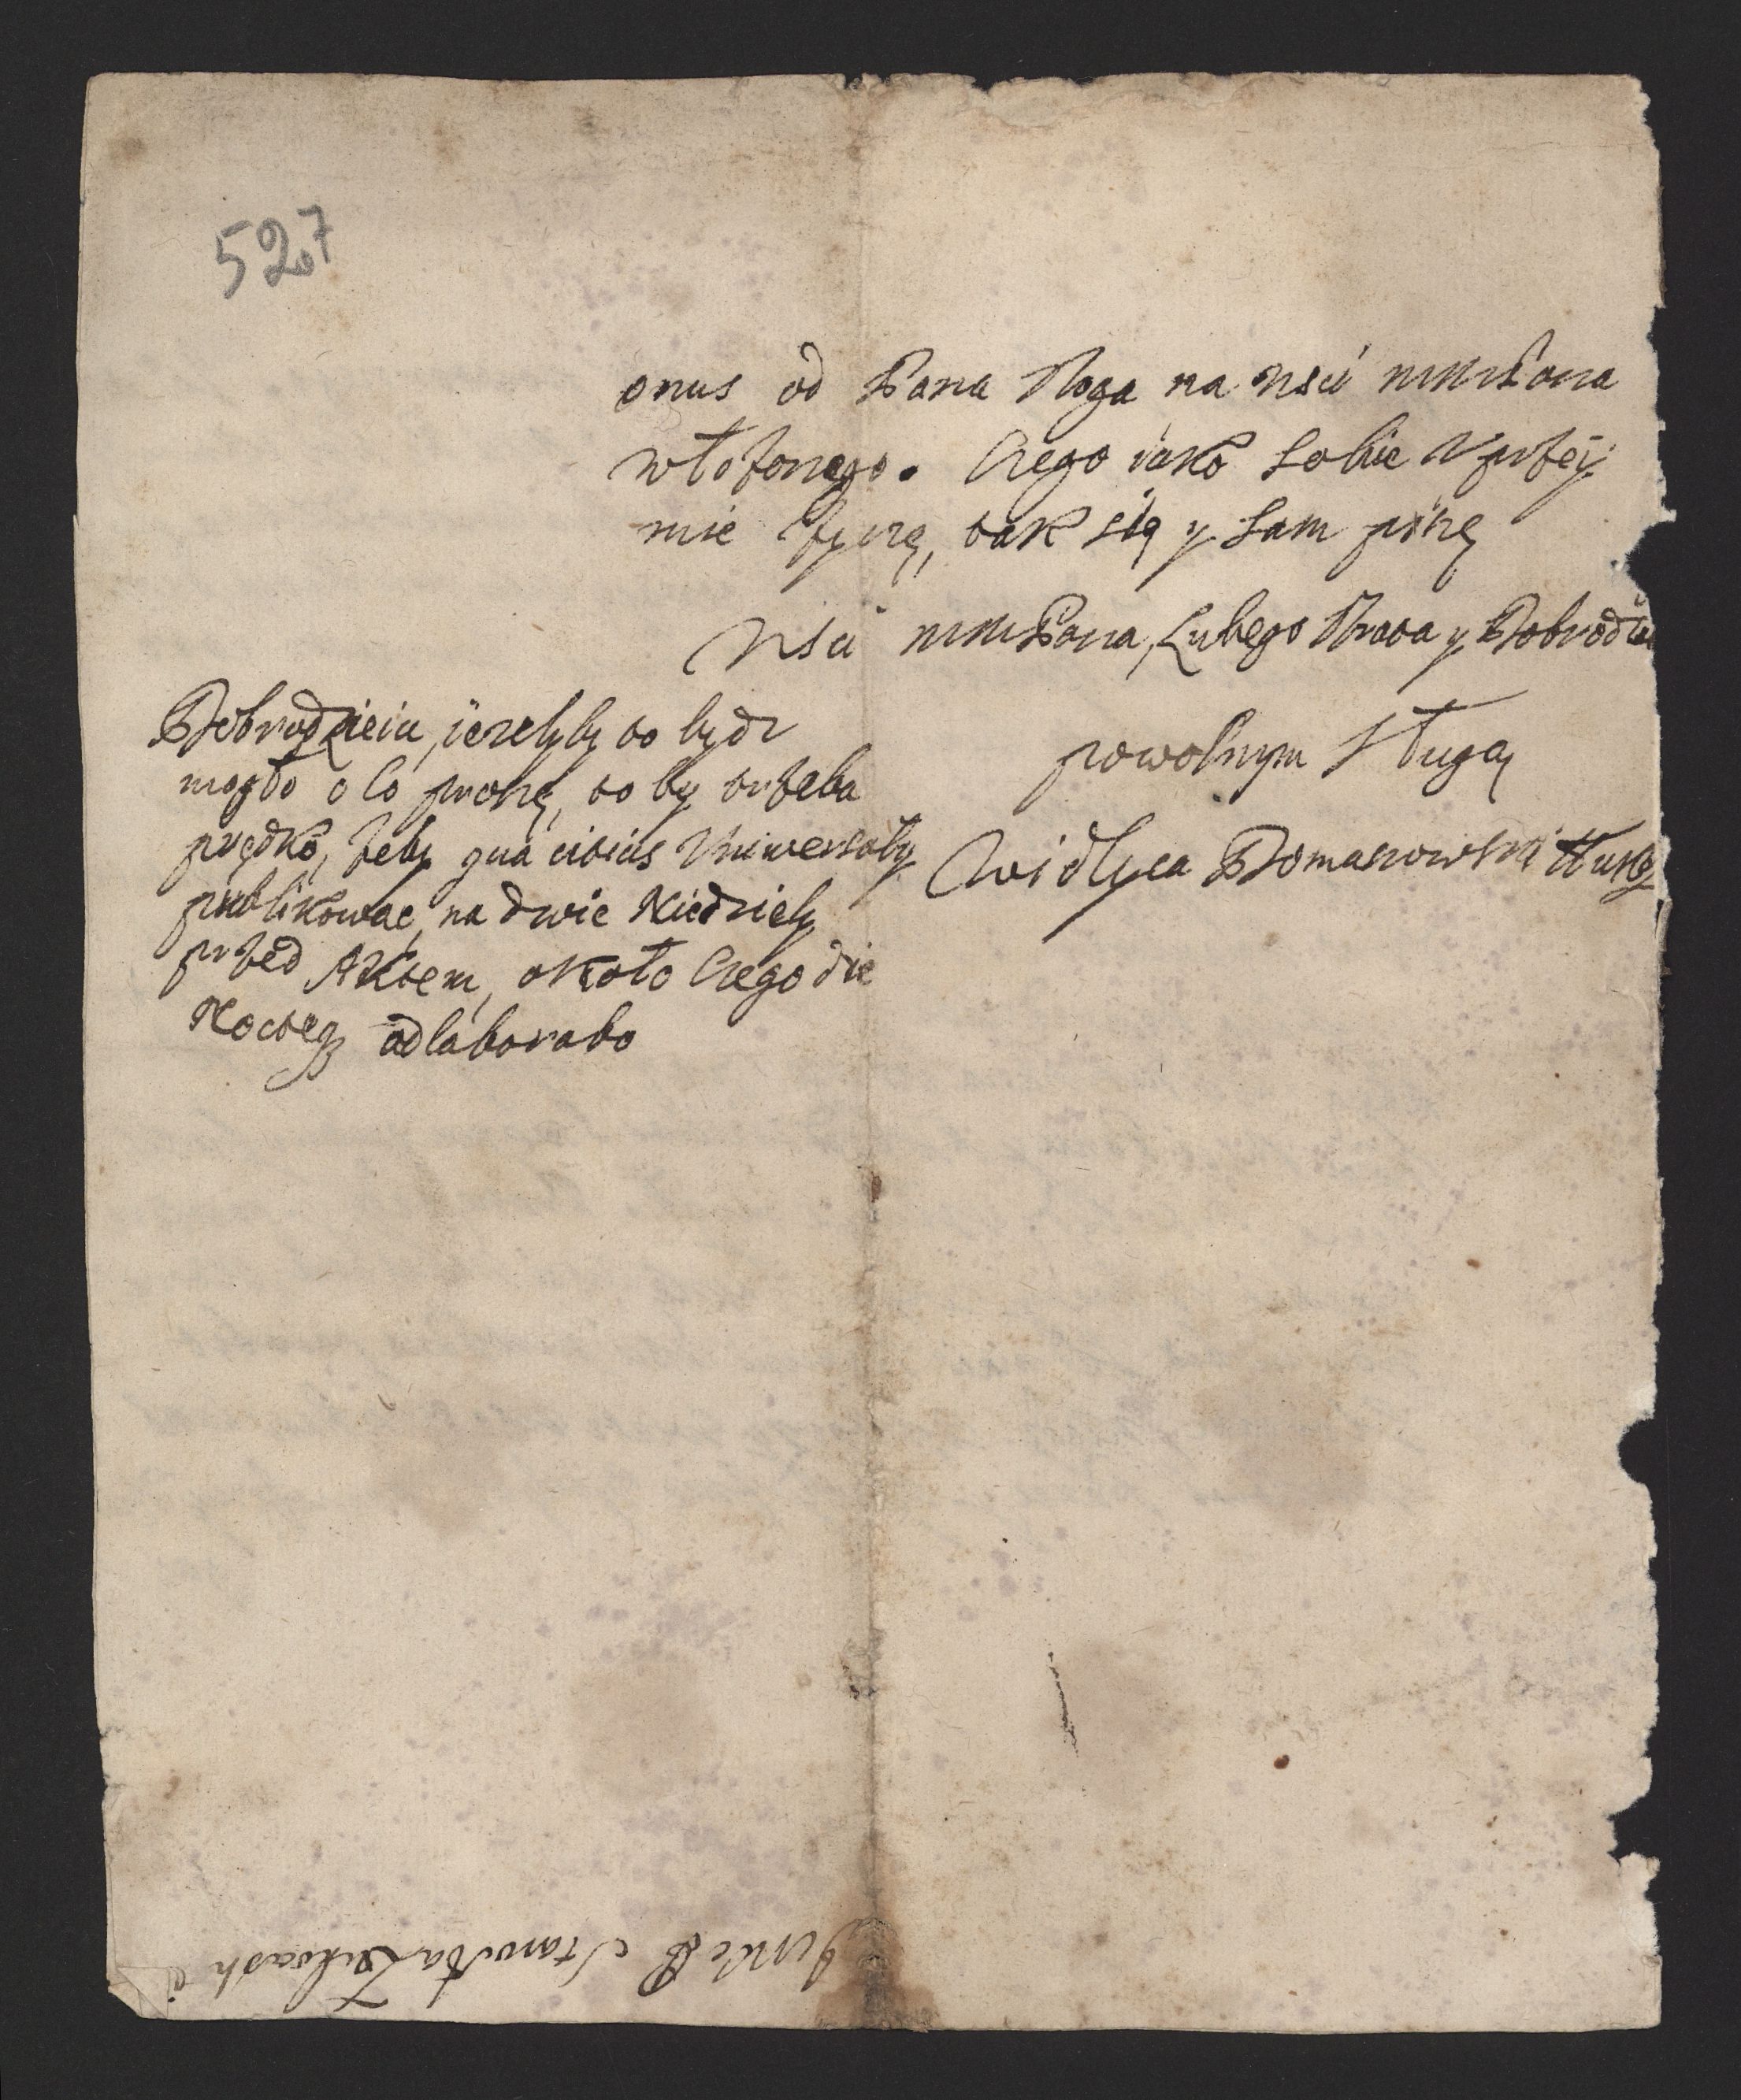 527
onus od Pana Boga na Wsci mmPana
włożonego. Czego iako sobie Vprzey:
mie życzę, tak się y sam piszę
Wsci mmPana, Lubego Brata y Dobrodzie
powolnym sługą
Domanowski
Dobrodzieiu, ieżelyby to bydz
mogło o co proszę, to by trzeba
prędko, żeby qua citius Vniwersały
publikować, na dwie Niedziely
przed Aktem, około czego die
Nocteq adlaborabo
Starosta